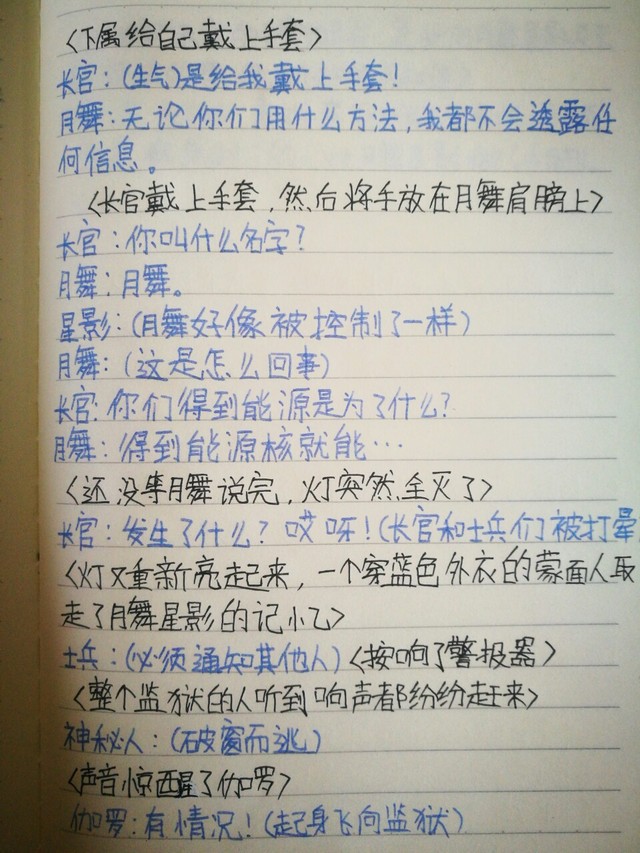 〈下属给自己戴上手套〉
长官：(生气)是给我戴上手套！
月舞：无论你们用什么方法，我都不会透露任
何信息。
〈长官戴上手套，然后将手放在月舞肩膀上〉
长官：你叫什么名字？
月舞：月舞。
星影：(月舞好像被控制了一样)
月舞：(这是怎么回事)
长官：你们得到能源是为了什么？
月舞：得到能源核就能…
〈还没等月舞说完，灯突然全灭了〉
长官：发生了什么？哎呀！(长官和士兵们被打晕
〈灯又重新亮起来，一个穿蓝色外衣的蒙面人取
走了月舞星影的记忆〉
士兵：(必须通知其他人)〈按响了警报器〉
〈整个监狱的人听到响声都纷纷赶来〉
神秘人：(破窗而逃)
〈声音惊醒了伽罗〉
伽罗：有情况！(起身飞向监狱)